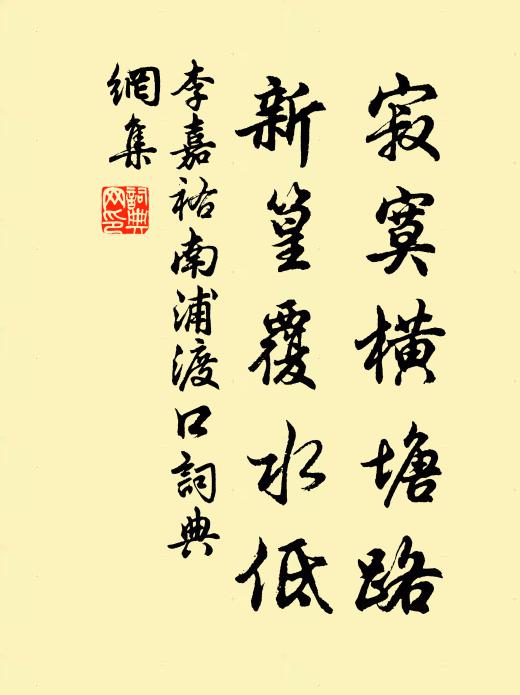 寂寞橫塘路
新篁覆水低
李嘉祐南浦渡口詞典
網集
詞典
网印